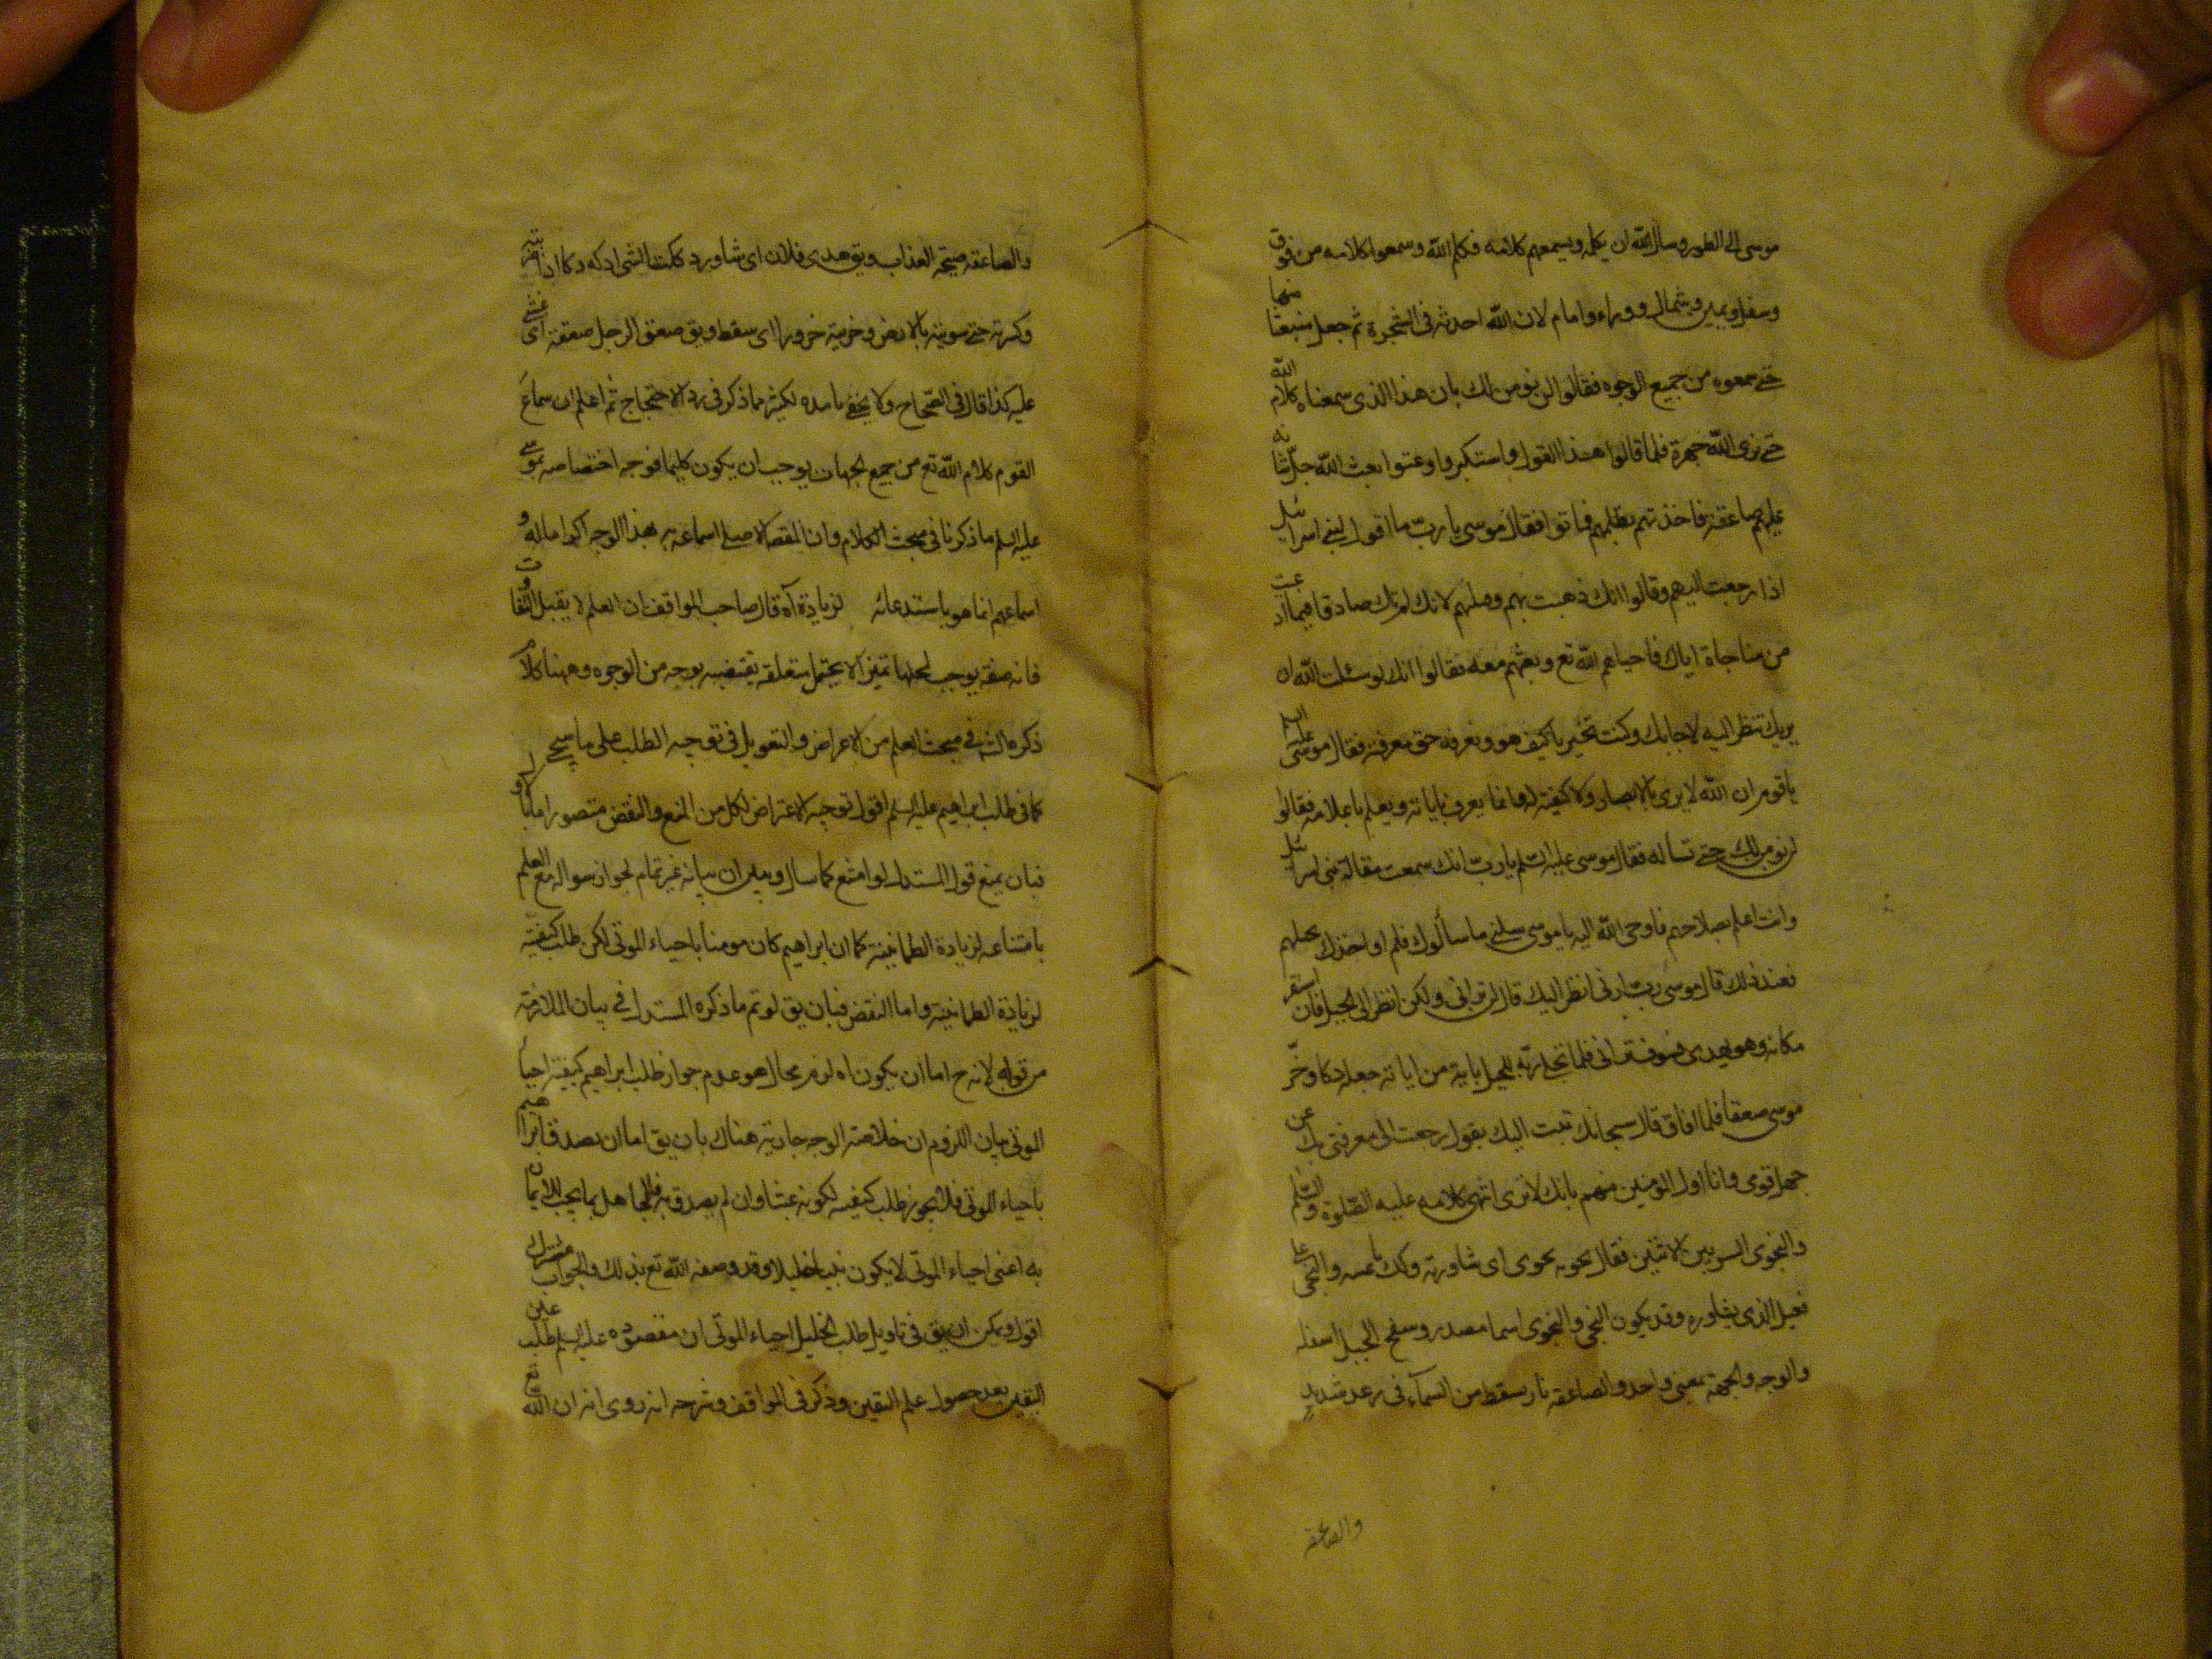 موسى الى الطور وسال الله ان يكلمه ويسمعهم كلامه فكلم الله وسمعوا كلامه من فوق
وسفل ويمين وشمال ووراء وامام لان الله احدثه في الشجرة ثم جعل منبعثا منها
حتى سمعوه من جميع الوجوه فقالوا لن نومن لك بان هذا الذى سمعناه كلام الله
حتى نرى الله جهرة فلما قالوا هذا القول واستكبروا وعتوا بعث الله جل شانه
عليهم صاعقة فاخذتهم بظلمهم فماتوا فقال موسى يا رب ما اقول لبنى اسرائيل
اذا رجعت اليهم وقالوا انك ذهبت بهم وقتلتهم لانك لم تك صادقا فيما ادعيت
من مناجاة اياك فاحياهم الله تع وبعثهم معه فقالوا انك لو سئلت الله ان
يريك تنظر اليه لاجابك وكنت تخبرنا كيف هو ونعرفه حق معرفته فقال موسى عليه السلم
يا قوم ان الله لا يرى بالابصار ولا كيفية له وانما يعرف باياته ويعلم باعلامه فقالوا
لن نومن لك حتى تساله فقال موسى عليه السلم يا رب انك سمعت مقالة بنى اسرائيل
وانت اعلم بصلاحهم فاوحى الله اليه يا موسى سلنى ما سالوك فلم اواخذك بجهلهم
فعند ذلك قال موسى رب ارنى انظر اليك قال لن ترانى ولكن انظر الى الجبل فان استقر
مكانه وهو يهوى فسوف ترانى فلما تجلى ربه للجبل باية من اياته جعله دكا وخر
موسى صعقا فلما افاق قال سبحانك تبت اليك يقول رجعت الى معرفتى بك عن
جهل قومى وانا اول المومنين منهم بانك لا ترى انتهى كلامه عليه الصلوة والسلم
والنجوى السر بين الاثنين فقال نجوته نجوى اى شاورته وكك ناجيته والنجى على
فعيل الذى يشاوره وقد يكون النجى والنجوى اسما مصدر وسفح الجبل اسفله
والوجه والجهة بمعنى واحد والصاعقة نار يسقط من السماء فى رعد شديد
والصاعقة
والصاعقة صيحة العذاب ويق فلان اى شاوره دككت الشى ادكه دكا اذا ضربته
وكسرته حتى سويته بالارض وخر يخر خرورا اى سقط ويق صعق الرجل صعقة اى غشى
عليه كذا قال فى الصحاح ولا يخفى ما ذكر فى رد الاحتجاج ثم اعلم ان سماع
القوم كلام الله تع من جميع الجهات يوجب ان يكون كليما فوجه اختصاصه بموسى
عليه السلم ما ذكرنا فى مبحث الكلام وان المقص الاصلى اسماعه بهذا الوجه اكراما له و
اسماعهم انما هو باستدعائه لزيادة آه قال صاحب المواقف ان العلم لا يقبل التفاوت
فانه صفة يوجب لمحلها تميزا لا يحتمل متعلقه نقيضه بوجه من الوجوه وههنا كلام
ذكره الش فى مبحث العلم من الاعراض والتعويل فى توجيه الطلب على ما سيجى
كما فى طلب ابراهيم عليه السلم اقول توجيه الاعتراض لكل من المنع والنقض متصور اما
فبان يمنع قول المستدل لو امتنع لما سال ويبين ان بيانه غير تمام لجواز سواله مع العلم
بامتناعه لزيادة الطمانينة كما ان ابراهيم كان مومنا باحياء الموتى لكن طلب كيفيته
لزيادة الطمانينة واما النقض فبان يق لو تم ما ذكره المستدل فى بيان الملازمة
من قوله لانه ح اما ان يكون اه لزم محال هو عدم جواز طلب ابراهيم كيفية احياء
الموتى بيان اللزوم ان خلاصة الوجه جارية هناك بان يق اما ان يصدق ابراهيم
باحياء الموتى فلا يجوز طلب كيفيته لكونه عبثا وان لم يصدق به فالجاهل بما يجب الايمان
به اعنى احياء الموتى لا يكون نبيا خليلا وقد وصفه الله تع بذلك والجواب مشترك
اقول ويمكن ان يق فى تاويل طلب الخليل احياء الموتى ان مقصوده عليه السلم طلب عين
اليقين بعد حصول علم اليقين وذكر فى المواقف وشرحه انه روى انه ان الله تع